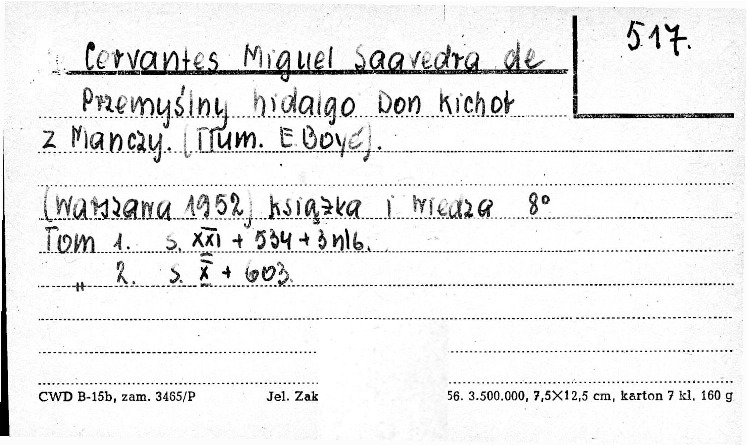 517.
Cervantes Miguel Saavedra de
Przemyślny hidalgo Don Kichot
z Manczy. (Tłum. E Boyé).
(Warszawa 1952) Książka i Wiedza 8°
Tom 1. s. XXI + 534 + 3 nlb.
" 2. s. X + 603.
CWD B-15b, zam. 3465/P Jel. Zak 56. 3.500.000, 7,5×12,5 cm, karton 7 kl. 160 g